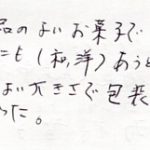 品のよいお菓子で
にも(和,洋)あうと
よい大きさで包装
った。